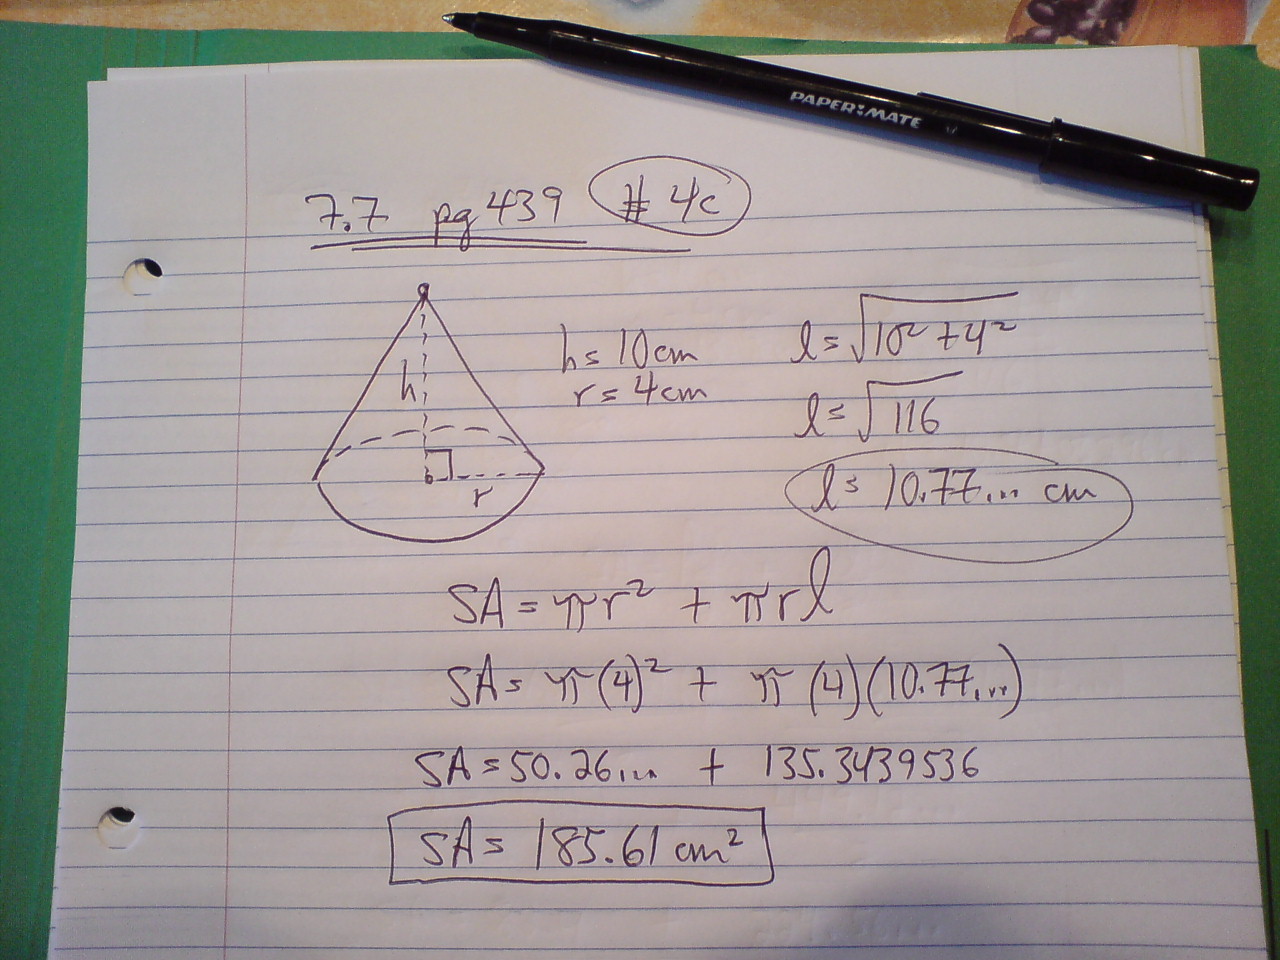 PAPER:MATE
7.7 pg 439 # 4c
h
r
h = 10cm
r = 4cm
l = √10² + 4²
l = √116
l = 10.77... cm
SA = πr² + πrl
SA = π(4)² + π(4)(10.77...)
SA = 50.26... + 135.3439536
SA = 185.61 cm²